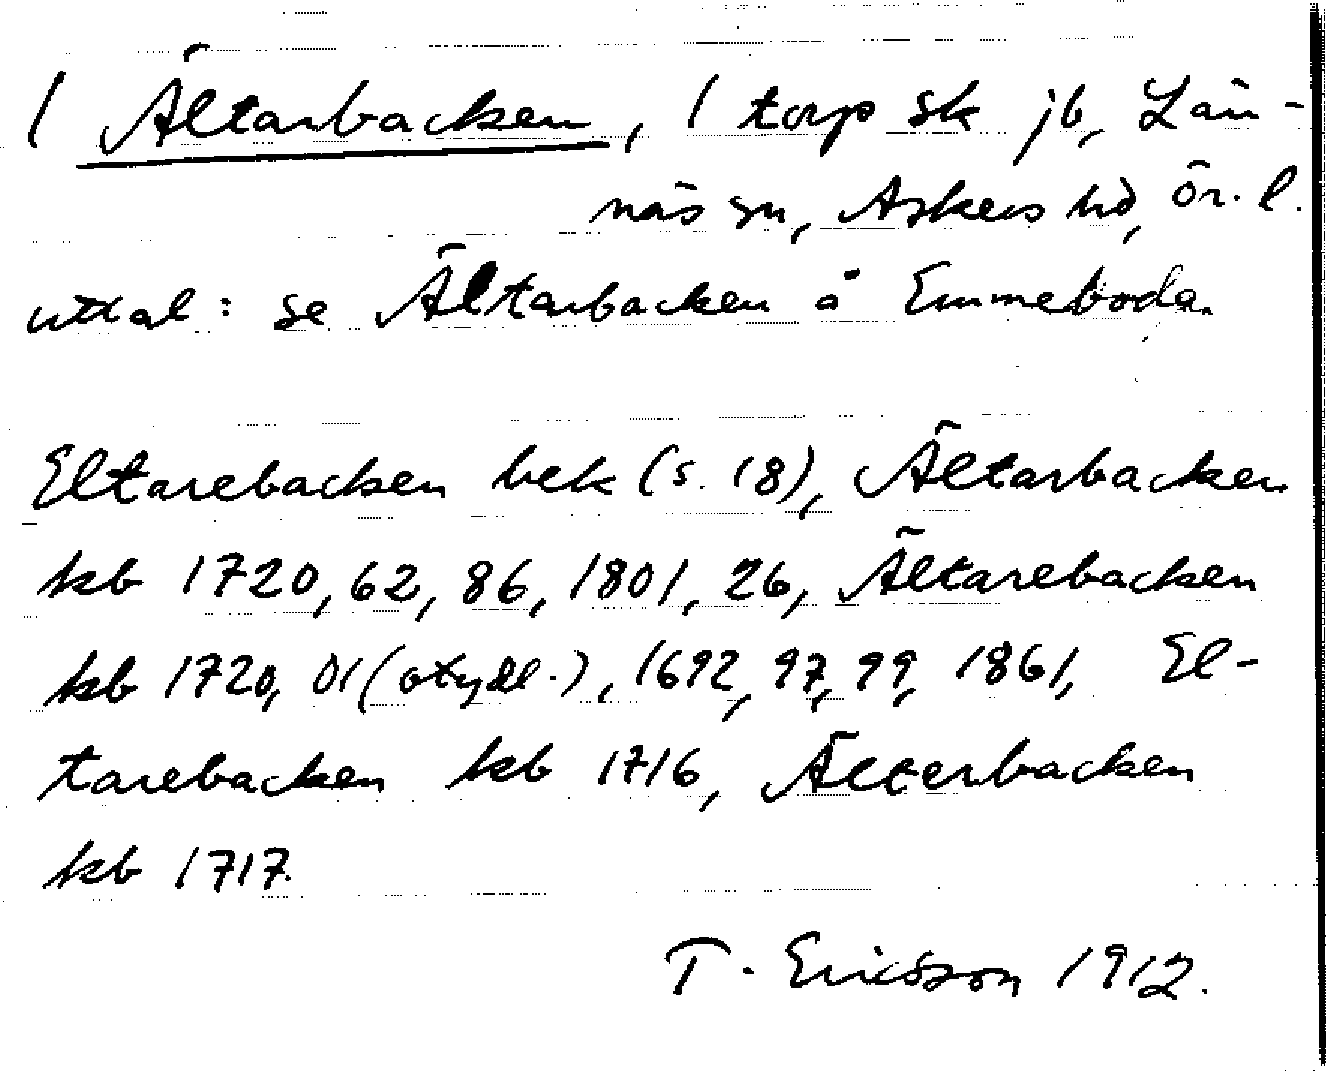 1 Ältarbacken, 1 torp sk jb, Län-
näs sn, Askers hd, Ör. l.
uttal: se Ältarbacken å Emmeboda.
Eltarebacken bek (s. 18), Ältarbacken
kb 1720, 62, 86, 1801, 26, Ältarebacken
kb 1720, 01 (otydl.), 1692, 97, 99, 1861, El-
tarebacken kb 1716, Älterbacken
kb 1717.
T. Ericsson 1912.